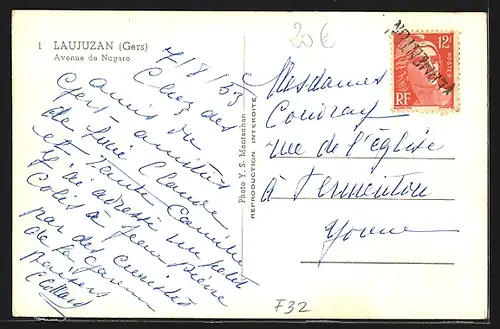 1 LAUJUZAN (Gers)
Avenue de Nogaro
7/8/53
Chez des
amis du
Gers - amitiés
de Lucie Claude
et Tante Camille
J'ai adressé un petit
Colis à Jean Pierre
par des
de la
Photo Y. S. Montauban
REPRODUCTION INTERDITE
20 €
12F
POSTES
RF
VERMENTON
Mesdames
Coudray
rue de l'église
à Vermenton
Yonne
F32